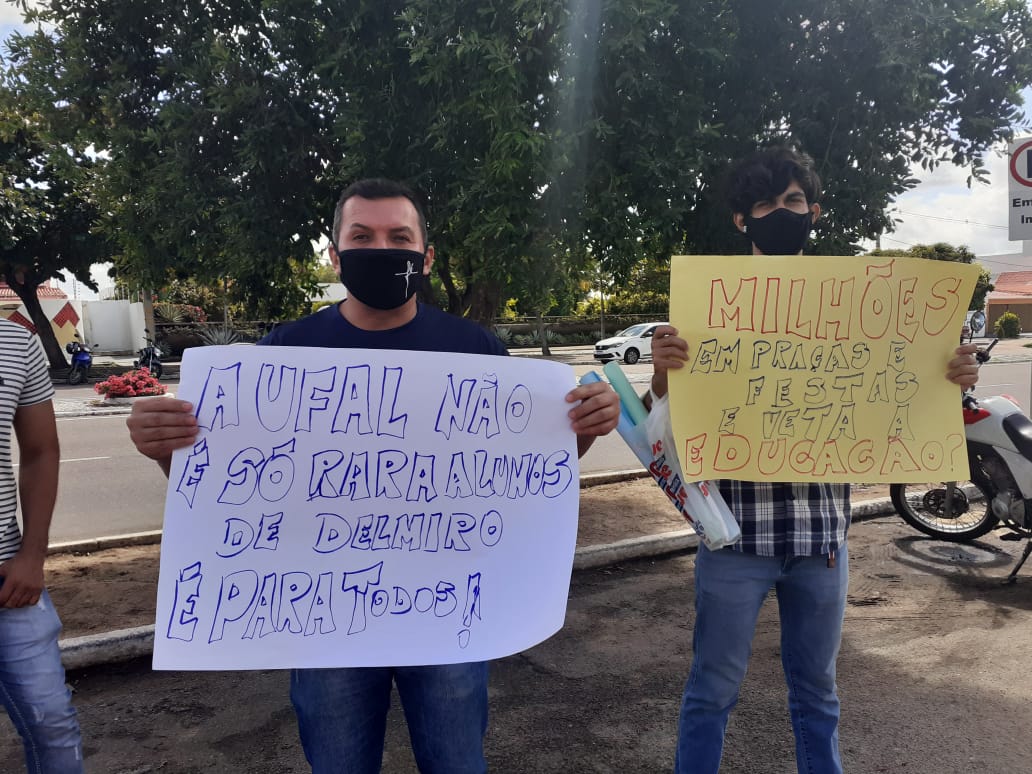 A UFAL NÃO
É SÓ PARA ALUNOS
DE DELMIRO
É PARA TODOS!
MILHÕES
EM PRAÇAS E
FESTAS
E VETA A
EDUCAÇÃO!
Em